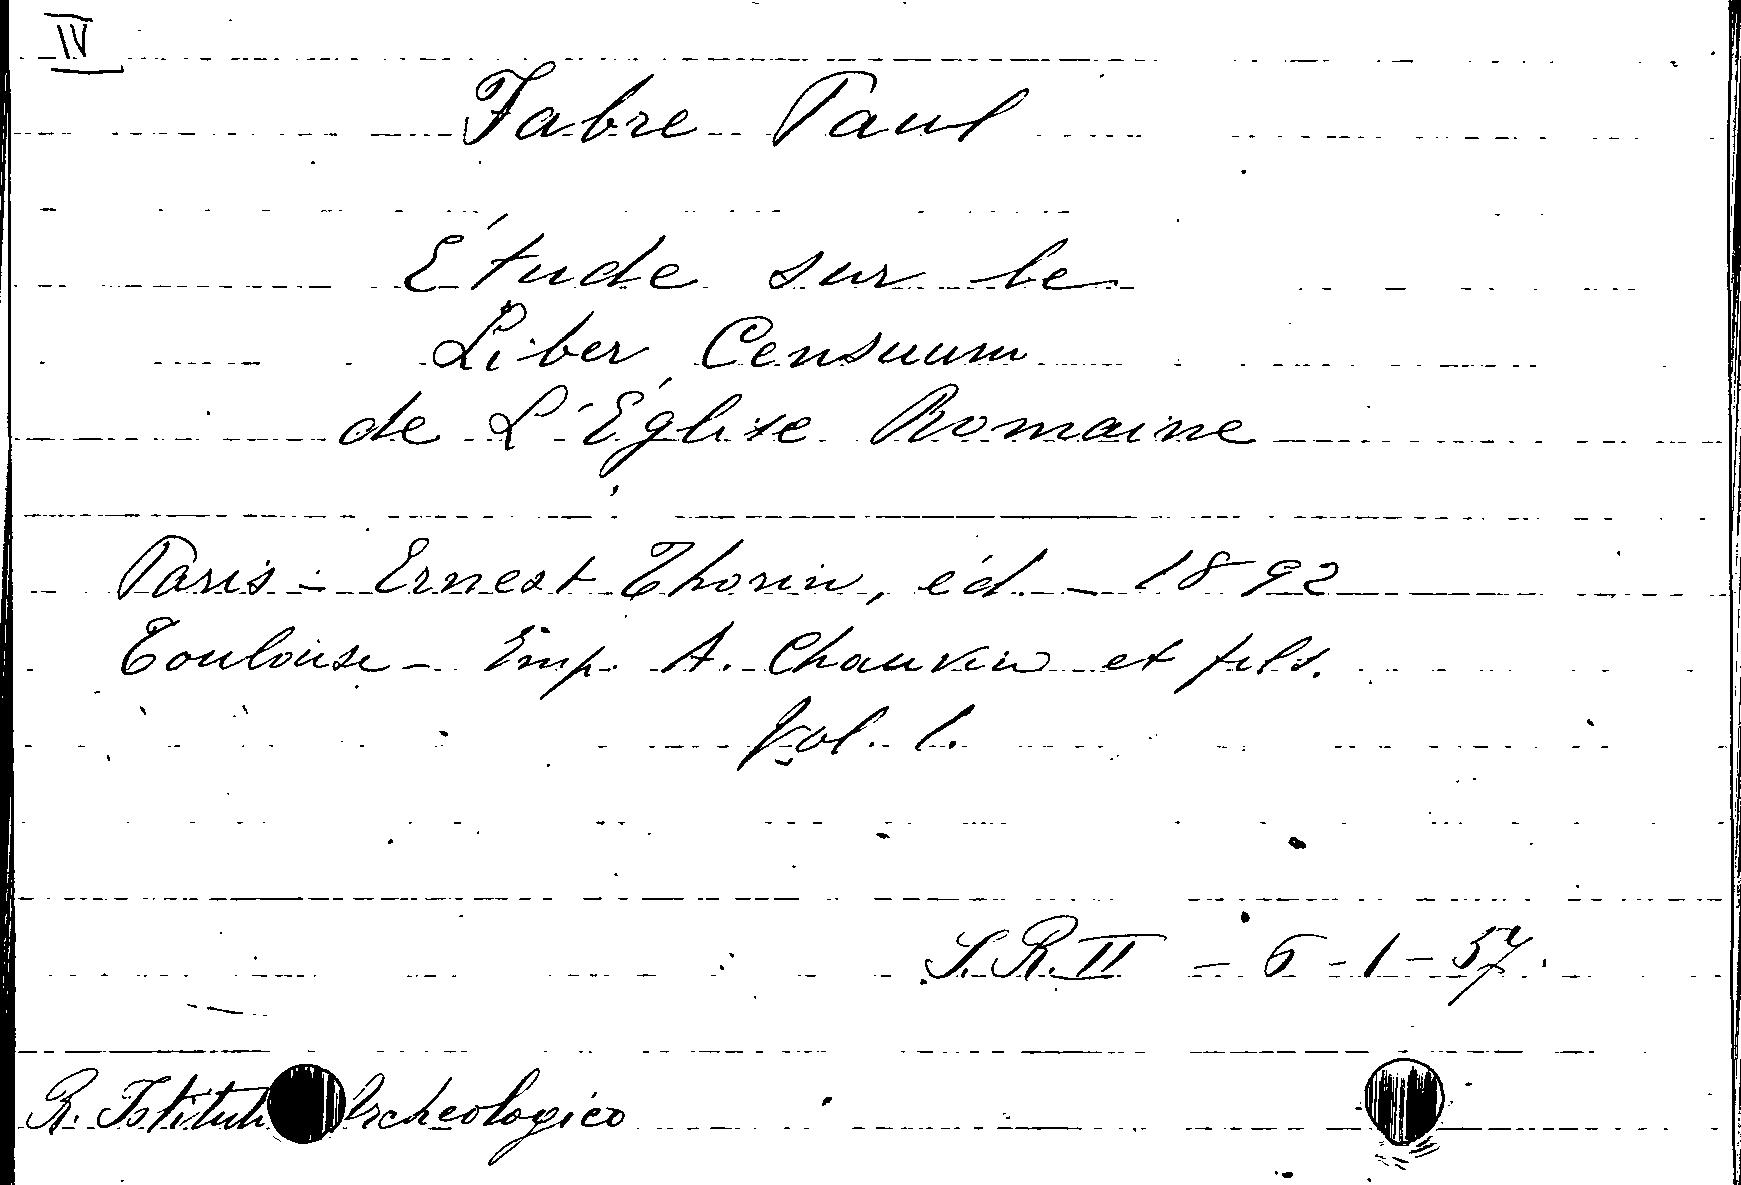 IV
Fabre Paul
Étude sur le
Liber Censuum
de L'Église Romaine
Paris - Ernest Thorin, éd. - 1892
Toulouse - Imp. A. Chauvin et fils.
Vol. 1.
S. R. II - 6 - 1 - 57.
R. Istituto Archeologico